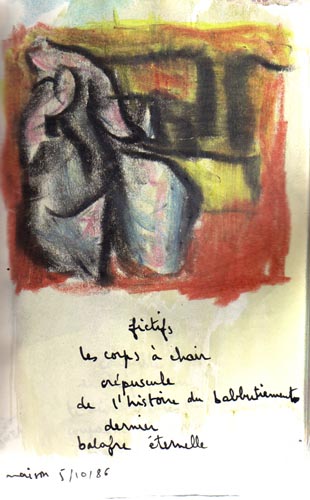 fictifs
les corps à chair
crépuscule
de l'histoire du balbutiements
dernier
balafre éternelle
maison 5/10/86